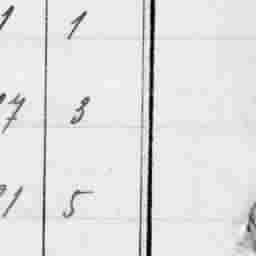 1 1
7 3
1 5